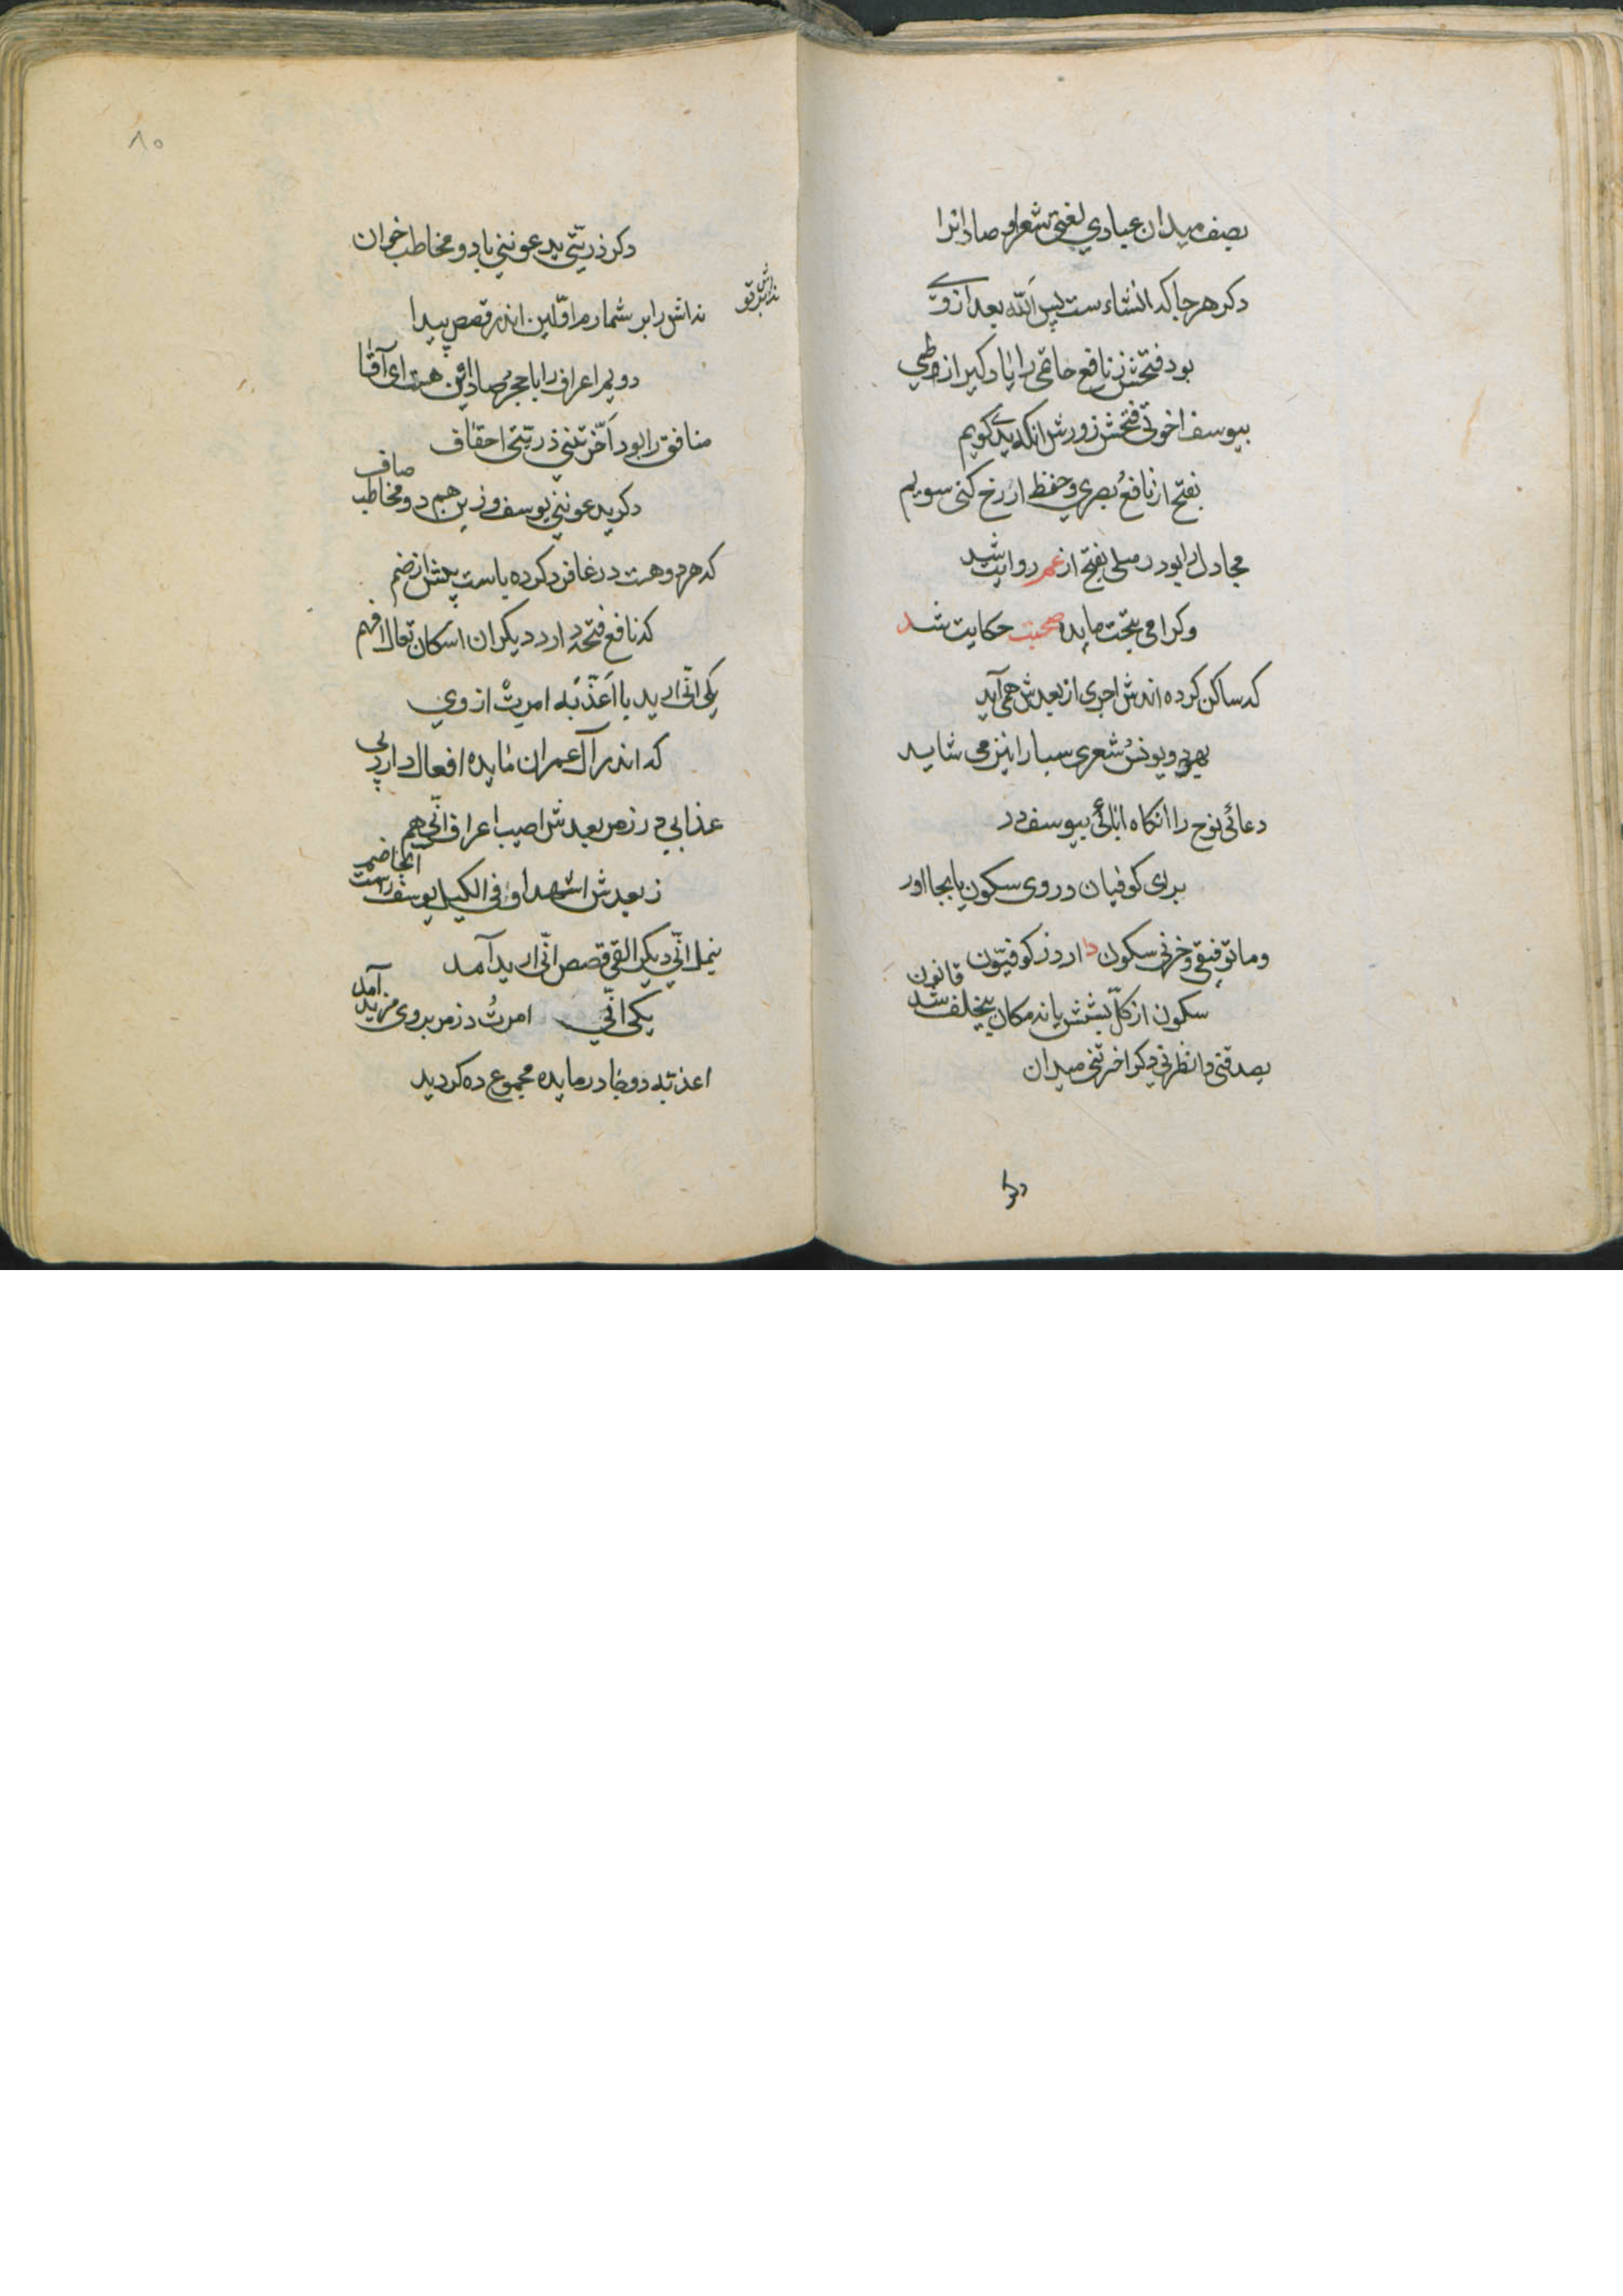 بصف میدان عبادی لغنتی شعرا و صاد انرا
دکر هرجا که انشاء ست پس الله بعد از وی
بود فتحش ز نافع خاتمی را یاد کیر از وطی
بیوسف اخوتی فتحش ز ورش انکه پدی کویم
بفتح از نافع و بصری و حفظ ار رخ کنی سویم
مجادل را بود رسلی بفتح از عمر روایت شد
وکر امی بتحت مایده صحبت حکایت شد
که ساکن کرده اندش اجری از بعدش همی آید
بهود و یونس و شعری سبا را نیز می شاید
دعائی نوح را انکاه ابائی بیوسف در
برای کوفیان در وی سکون یا بجا اور
وما توفیقی و حزنی سکون دارد ز کوفیون قانون
سکون از کل بششش یا ند مکان یخلف شد
یصدقنی و انظرنی دکر اخرتنی میدان
دکر
۸۰
دکر ذریتی یدعوننی با دو مخاطب خوان
نداش را بر شمارم اولین اندر قصص پیدا
دویم اعراف را با حجر و صاد این هست ای آقا
منافق را بود اخرتنی ذریتی احقاف
دکر یدعوننی یوسف وزین هم دو مخاطب صاف
که هر دو هست در غافر دکر ده یاست پیش از ضم
که نافع فتحه دارد دیکران اسکان تعال افهم
یکی انی ارید با اعذبه امرت از وی
که اندر آل عمران مایده افعال دارد پی
عذابی در زمر بعدش اصیب اعراف انی هم
ز بعدش اشهد اوفی الکیل یوسف راست آنجا ضم
بنمل انی دیکر القی قصص انی ارید آمد
یکی انی امرت در زمر بر وی مزید آمد
اعذبه دو جا در مایده مجموع ده کردید